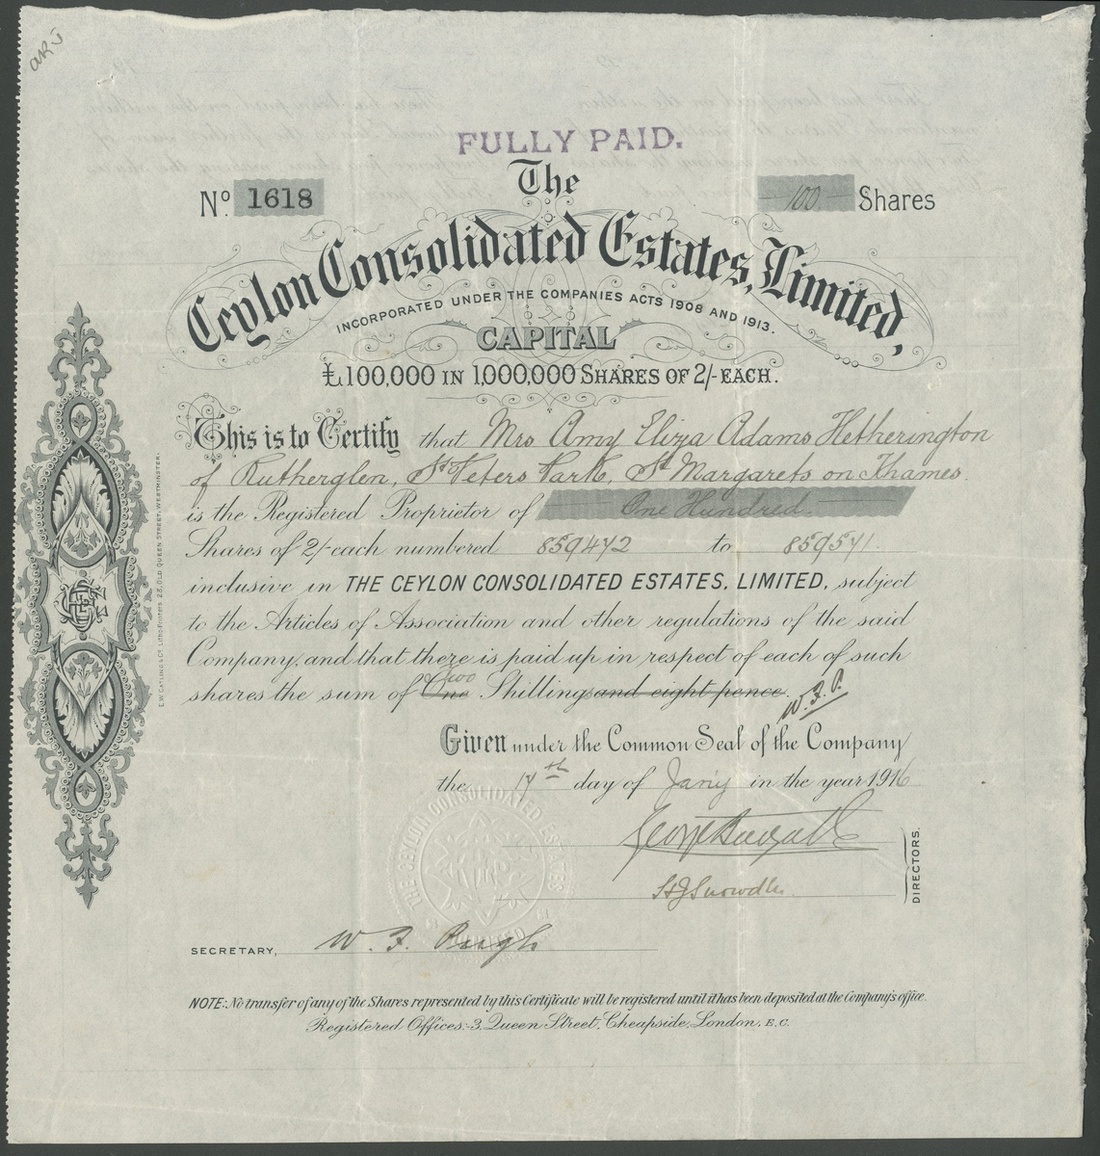 ARJ
FULLY PAID.
The
No. 1618
100 Shares
Ceylon Consolidated Estates, Limited,
INCORPORATED UNDER THE COMPANIES ACTS 1908 AND 1913.
CAPITAL
£100,000 IN 1,000,000 SHARES OF 2/- EACH.
This is to Certify that Mrs Amy Eliza Adams Hetherington
of Rutherglen, St Peters Park, St Margarets on Thames.
is the Registered Proprietor of One Hundred
Shares of 2/- each numbered 859472 to 859571.
inclusive in THE CEYLON CONSOLIDATED ESTATES, LIMITED, subject
to the Articles of Association and other regulations of the said
Company, and that there is paid up in respect of each of such
Two
shares the sum of One Shillings and eight pence.
W.F.P.
Given under the Common Seal of the Company
the 17th day of Jany in the year 1916
DIRECTORS.
SECRETARY, W. F. Pugh
THE CEYLON CONSOLIDATED ESTATES LIMITED
NOTE:- No transfer of any of the Shares represented by this Certificate will be registered until it has been deposited at the Company's office.
Registered Offices:- 3, Queen Street, Cheapside, London, E.C.
E.W. CATLING & Co. Litho Printers 2 & 3, OLD QUEEN STREET, WESTMINSTER.